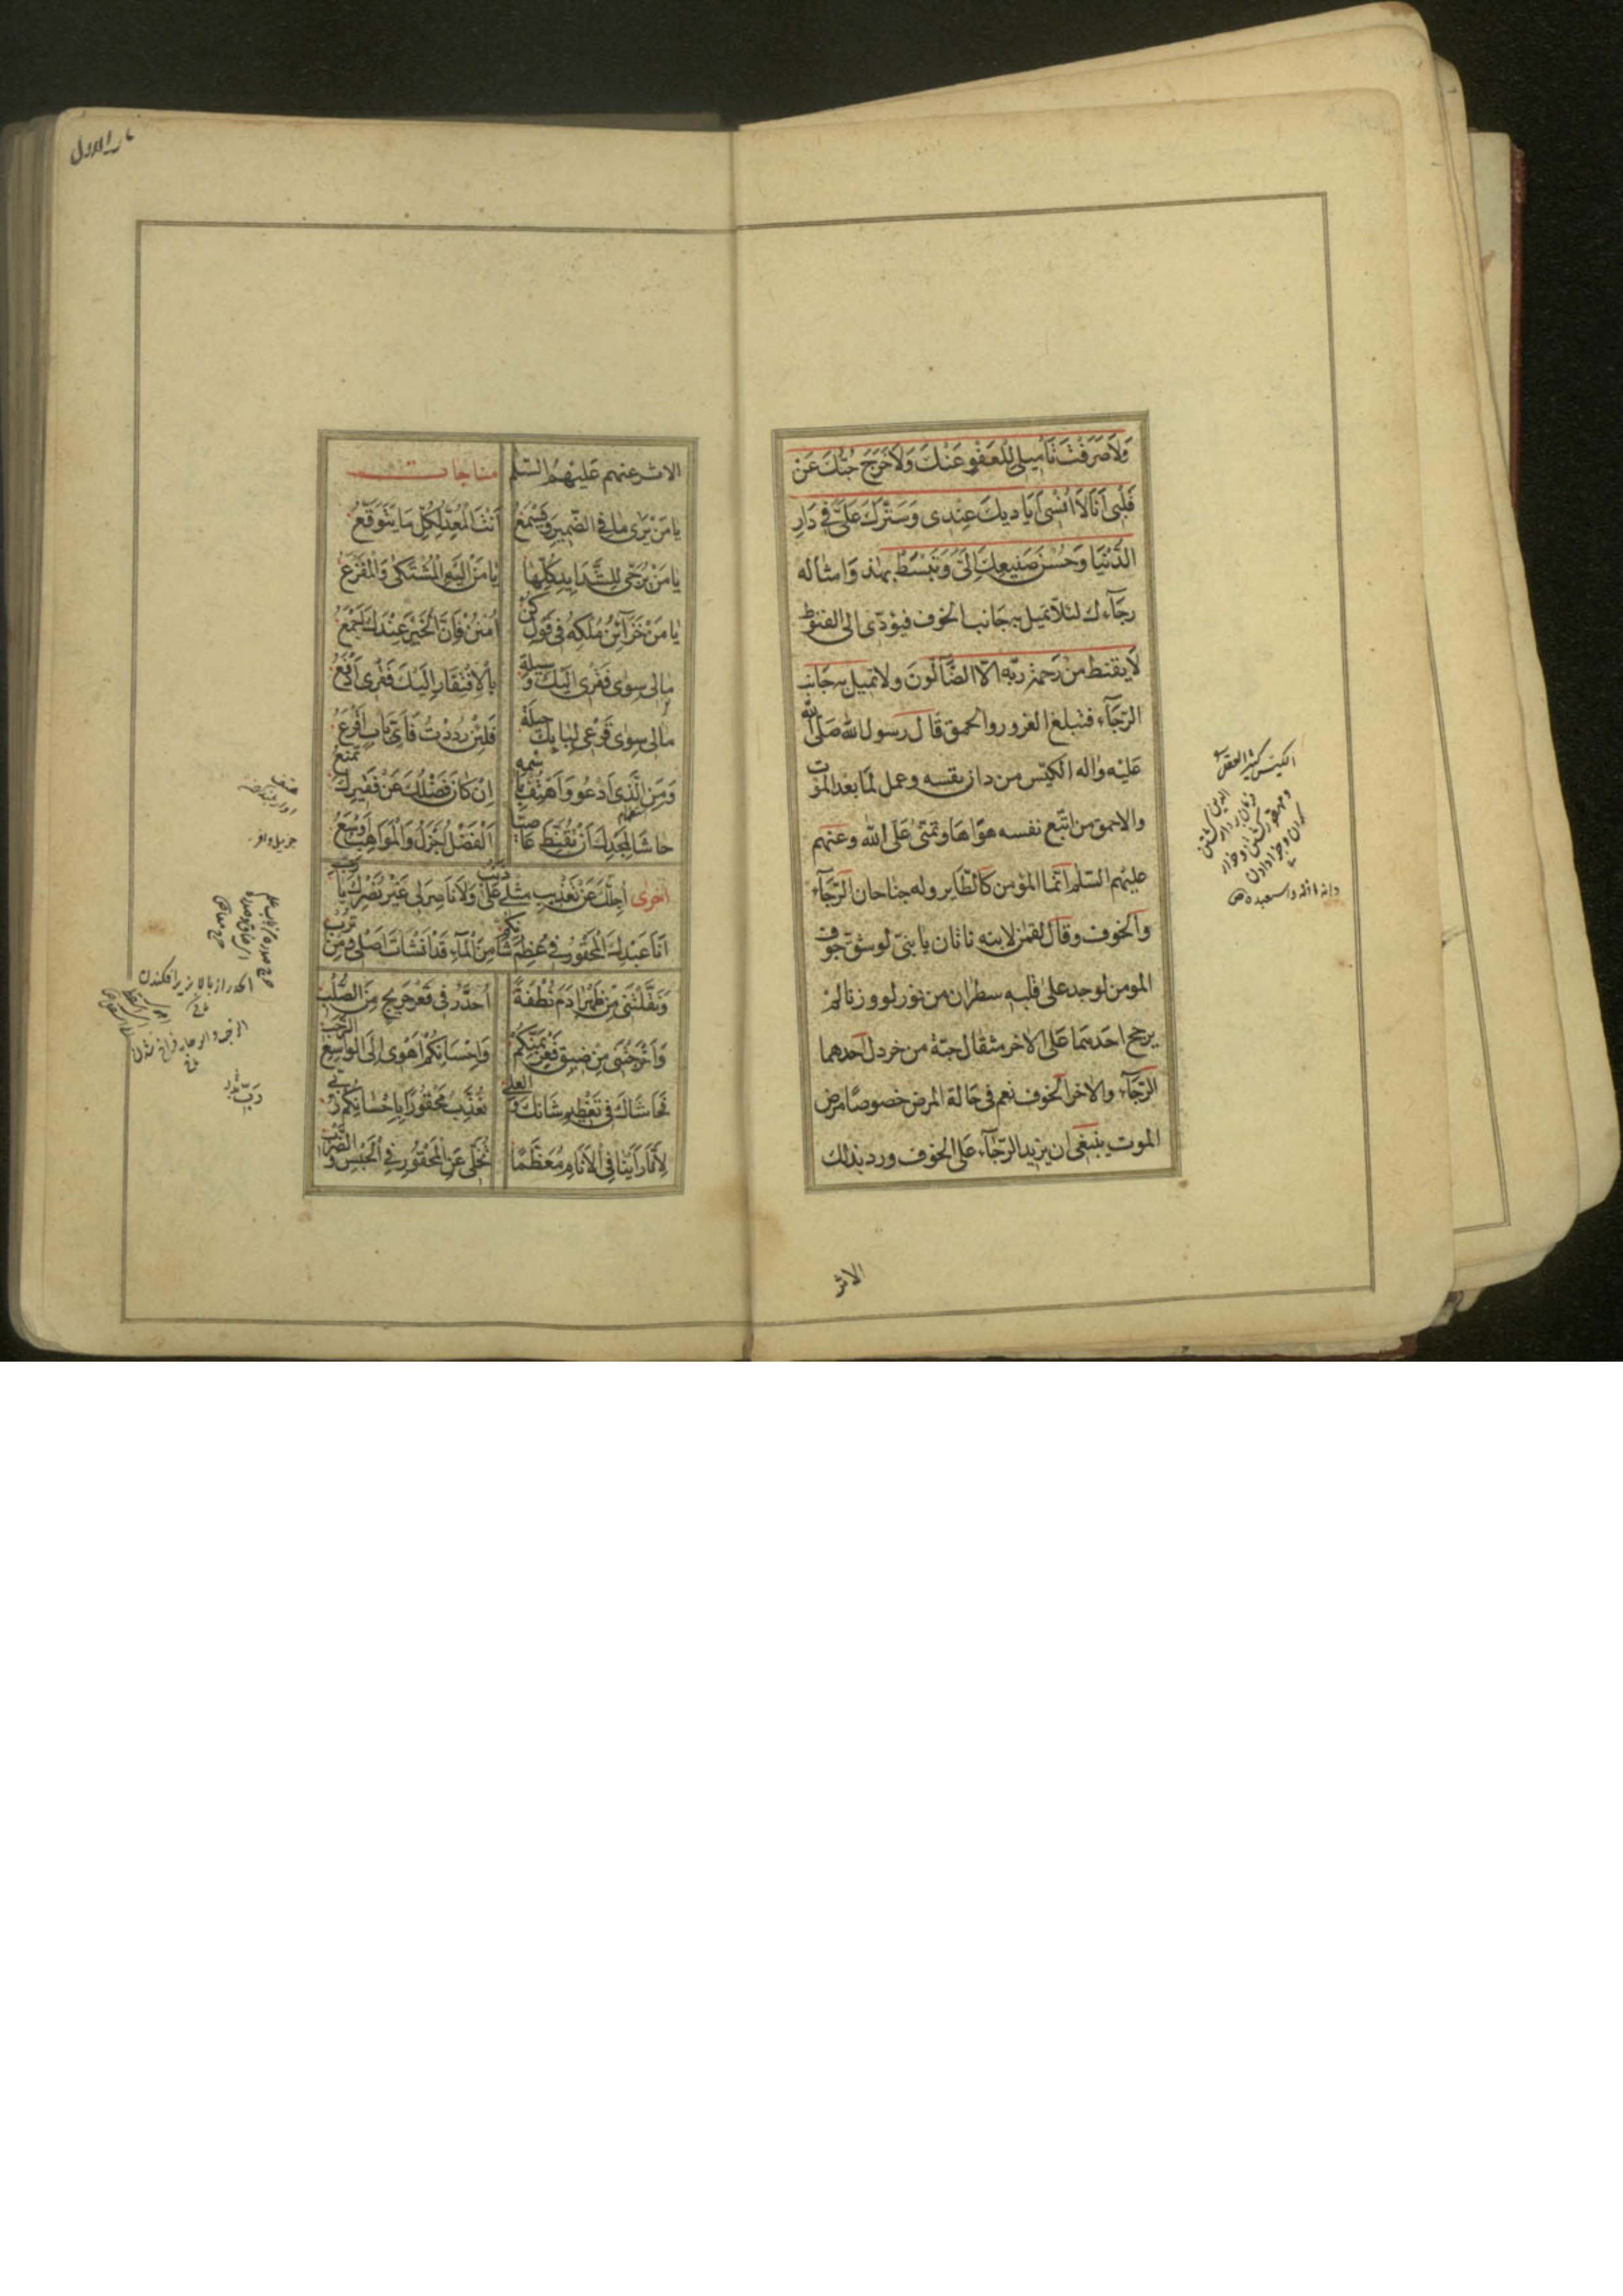 وَلَا صَرَفْتَ تَأْمِيلي لِلْعَفْوِ عَنْكَ وَلَا خَرَجَ حُبُّكَ عَنْ
قَلْبِي اَنَا لَا اَنْسٰى اَيَادِيكَ عِنْدِي وَسَتْرَكَ عَلَيَّ فِي دَارِ
الدُّنْيَا وَحُسْنَ صَنِيعِكَ اِلَيَّ وَتَبْسُطُ بهذه وَامثاله
رجَآءك لئلّا تميل بهِ جَانب الخوف فيؤدّى الى القنوط
لَا يقنط من رَحمة ربّه الّا الضَّآلّونَ ولا تميل به جَانب
الرّجَآء فتبلغ الغرور والحمق قَال رَسول الله صَلّى الله
عَليْه واله الكيّس من دان نفسه وعمل لمَا بعد الموت
والاحمق من اتّبع نفسه هوَاهَا وتمنّى عَلى الله وعنهم
عليهم السّلم انّما المؤمن كَالطّاير وله جناحان الرّجَآء
والخوف وقَال لقمٰن لابنه ناثان يا بنيّ لو شقّ جوف
المومن لوجد على قلبه سطران من نور لو وزنا لم
يرجح احدهمَا عَلى الاخر مثقال حبّة من خردل احدهما
الرّجَآء والاخر الخوف نعم في حَالة المرض خصوصًا مرض
الموت ينبغى ان يزيد الرّجَآء عَلى الخوف ورد بذلك
الاثر
الكيّس كثير العقل
الاثر عنهم عَليْهمُ السّلم مناجات
يَا مَنْ يَرٰى مَا فِي الضَّمِيرِ وَيَسْمَعُ اَنْتَ الْمُعِدُّ لِكُلِّ مَا يَتَوَقَّعُ
يَا مَنْ يُرَجّٰى لِلشَّدَايِدِ كُلِّهَا يَا مَنْ اِلَيْهِ الْمُشْتَكٰى وَالْمَفْزَعُ
يَا مَنْ خَزَآئِنُ مُلْكِهِ فِي قَوْلِ كُنْ اُمْنُنْ فَاِنَّ الْخَيْرَ عِنْدَكَ اَجْمَعُ
مَا لِي سِوٰى فَقْرِي اِلَيْكَ وَسِيلَةٌ بِالْاِفْتِقَارِ اِلَيْكَ فَقْرِي اَدْفَعُ
مَا لِي سِوٰى قَرْعِي لِبَابِكَ حِيلَةٌ فَلَئِنْ رُدِدْتُ فَاَيَّ بَابٍ اَقْرَعُ
وَمَنِ الَّذِي اَدْعُو وَاَهْتِفُ بِاسْمِهِ اِنْ كَانَ فَضْلُكَ عَنْ فَقِيرِكَ يُمْنَعُ
حَاشَا لِمَجْدِكَ اَنْ تُقَنِّطَ عَاصِيًا اَلْفَضْلُ اَجْزَلُ وَالْمَوَاهِبُ اَوْسَعُ
اُخرٰى اُجِلُّكَ عَنْ تَعْذِيبِ مِثْلِي عَلٰى ذَنْبٍ وَلَا نَاصِرَ لِي غَيْرُ نَصْرِكَ يَا رَبِّ
اَنَا عَبْدُكَ الْمَحْقُورُ فِي عِظَمِ شَانِكُمْ مِنَ الْمَآءِ قَدْ اَنْشَاتَ اَصْلِي وَمِنْ تُرْبِ
وَنَقَّلْتَنِي مِنْ ظَهْرِ اٰدَمَ نُطْفَةً اُحَدَّرُ فِي قَعْرٍ جَرِيحٍ مِنَ الصُّلْبِ
وَاَخْرَجْتَنِي مِنْ ضِيقِ قَعْرٍ بِمَنِّكُمْ وَاِحْسَانِكُمْ اَهْوِى اِلَى الْوَاسِعِ الرَّحْبِ
فَحَاشَاكَ فِي تَعْظِيمِ شَانِكَ وَالْعُلٰى تُعَذِّبُ مَحْقُورًا بِاِحْسَانِكُمْ رُبِّي
لِاَنَّا رَاَيْنَا فِي الْاَنَامِ مُعَظَّمًا تُخَلَّى عَنِ الْمَحْقُورِ فِي الْحَبْسِ وَالضَّرْبِ